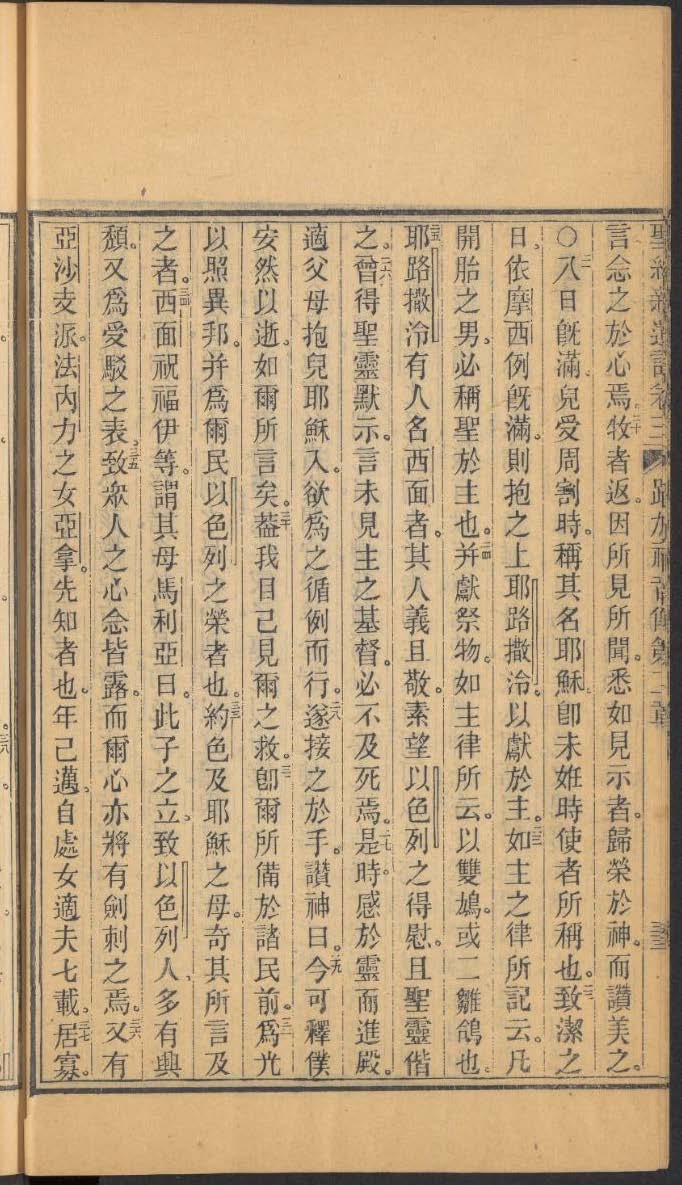 聖經新遺詔卷三 路加福音傳第二章
言念之於心焉。二十牧者返。因所見所聞。悉如見示者。歸榮於神。而讚美之。
○二一八日既滿。兒受周割時。稱其名耶穌。即未姙時使者所稱也。二二致潔之
日。依摩西例既滿。則抱之上耶路撒冷。以獻於主。二三如主之律所記云。凡
開胎之男。必稱聖於主也。二四并獻祭物。如主律所云。以雙鳩。或二雛鴿也。
二五耶路撒冷有人名西面者。其人義且敬。素望以色列之得慰。且聖靈偕
之。二六曾得聖靈默示。言未見主之基督。必不及死焉。二七是時。感於靈而進殿。
適父母抱兒耶穌入。欲爲之循例而行。二八遂接之於手。讚神曰。二九今可釋僕
安然以逝。如爾所言矣。三十葢我目已見爾之救。三一即爾所備於諸民前。三二爲光
以照異邦。并爲爾民以色列之榮者也。三三約色及耶穌之母。奇其所言及
之者。三四西面祝福伊等。謂其母馬利亞曰。此子之立。致以色列人。多有興
頽。又爲受駁之表。三五致衆人之心念皆露。而爾心亦將有劍刺之焉。三六又有
亞沙支派。法內力之女亞拿。先知者也。年已邁。自處女適夫七載。三七居寡。